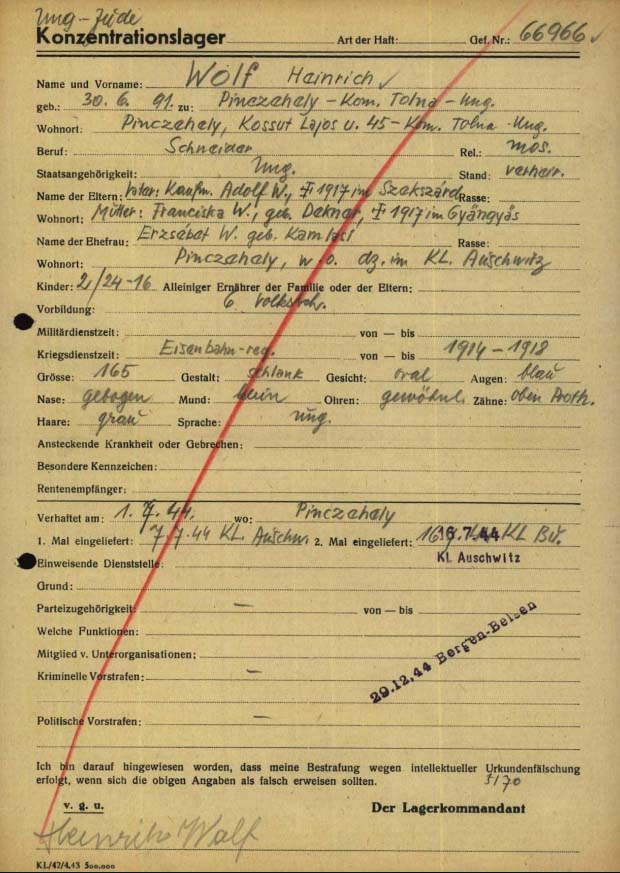 Ung-Jude
Konzentrationslager Art der Haft: Gef. Nr.: 66966
Name und Vorname: Wolf Heinrich
geb.: 30. 6. 91. zu: Pinczehely - Kom. Tolna - Ung.
Wohnort: Pinczehely, Kossut Lajos u. 45 - Kom. Tolna Ung.
Beruf: Schneider Rel.: mos.
Staatsangehörigkeit: Ung. Stand: verheir.
Name der Eltern: Vater: Kaufm. Adolf W., 1917 im Szekszárd Rasse:
Wohnort: Mutter: Franciska W., geb. 1917 im Gyöngyös
Name der Ehefrau: Erzsébet W. geb. Rasse:
Wohnort: Pinczehely, w. o. dz. im KL. Auschwitz
Kinder: 2/24-16 Alleiniger Ernährer der Familie oder der Eltern:
Vorbildung: 6 Volkssch.
Militärdienstzeit: von — bis
Kriegsdienstzeit: Eisenbahn-reg. von — bis 1914-1918
Grösse: 165 Gestalt: schlank Gesicht: oval Augen: blau
Nase: gebogen Mund: klein Ohren: gewöhnl. Zähne: oben Proth.
Haare: grau Sprache: ung.
Ansteckende Krankheit oder Gebrechen:
Besondere Kennzeichen:
Rentenempfänger:
Verhaftet am: 1. 7. 44. wo: Pinczehely
1. Mal eingeliefert: 7.7.44 KL. Auschw. 2. Mal eingeliefert: 16.7.44 KL Bu.
KL Auschwitz
Einweisende Dienststelle:
Grund:
Parteizugehörigkeit: — von — bis
Welche Funktionen:
29.12.44 Bergen-Belsen
Mitglied v. Unterorganisationen:
Kriminelle Vorstrafen: —
Politische Vorstrafen: —
Ich bin darauf hingewiesen worden, dass meine Bestrafung wegen intellektueller Urkundenfälschung
erfolgt, wenn sich die obigen Angaben als falsch erweisen sollten. 5170
v. g. u. Der Lagerkommandant
Heinrich Wolf
KL/42/4.43 500.000